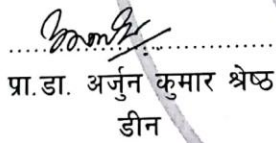 प्रा.डा. अर्जुन कुमार श्रेष्ठ
डीन